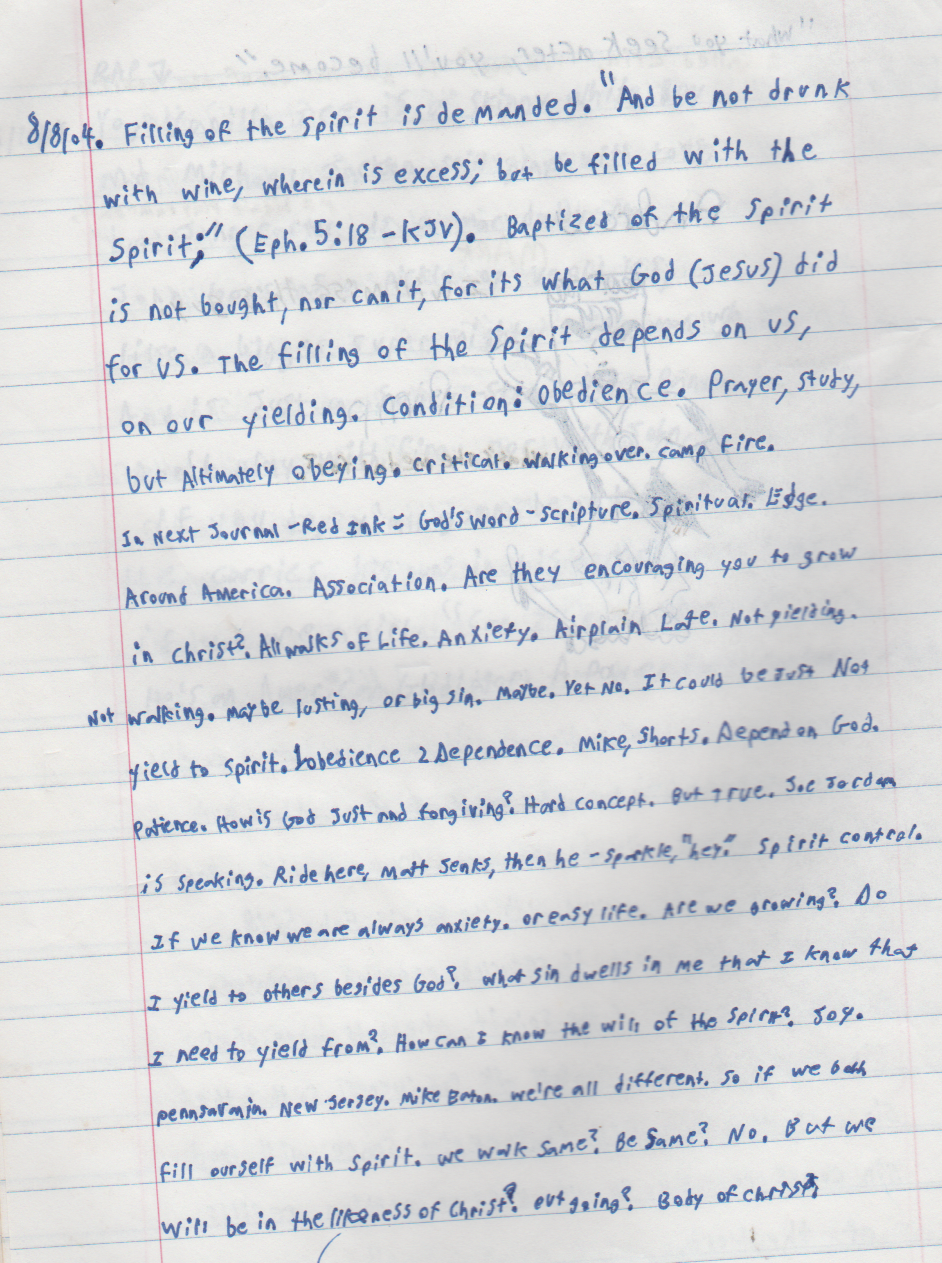 "What you seek after, you'll become"
8/8/04. Filling of the spirit is demanded. "And be not drunk
with wine, wherein is excess; but be filled with the
Spirit;" (Eph. 5:18 - KJV). Baptized of the Spirit
is not bought, nor can it, for its what God (Jesus) did
for us. The filling of the Spirit depends on us,
on our yielding. Condition: obedience. Prayer, study,
but Altimately obeying. critical. walking over. camp fire.
In Next Journal - Red Ink = God's word - scripture. Spiritual Edge.
Around America. Association. Are they encouraging you to grow
in christ?. All walks of Life. Anxiety. Airplain Late. Not yielding.
Not walking. maybe lusting, or big sin. Maybe. Yet No. It could be just Not
yield to spirit. 1 obedience 2 Dependence. Mike, Shorts. Depend on God.
Patience. How is God Just and forgiving? Hard concept. But True. Joe Jordan
is speaking. Ride here, Matt Jenks, then he - sparkle, "hey." Spirit control.
If we know we are always anxiety. or easy life. Are we growing?. Do
I yield to others besides God?. what sin dwells in me that I know that
I need to yield from?. How can I know the will of the Spirit?. Joy.
pennsavania. New Jersey. Mike Eaton. we're all different. So if we both
fill ourself with spirit. we walk same? Be Same? No. But we
will be in the likeness of Christ? out going? Body of christ?